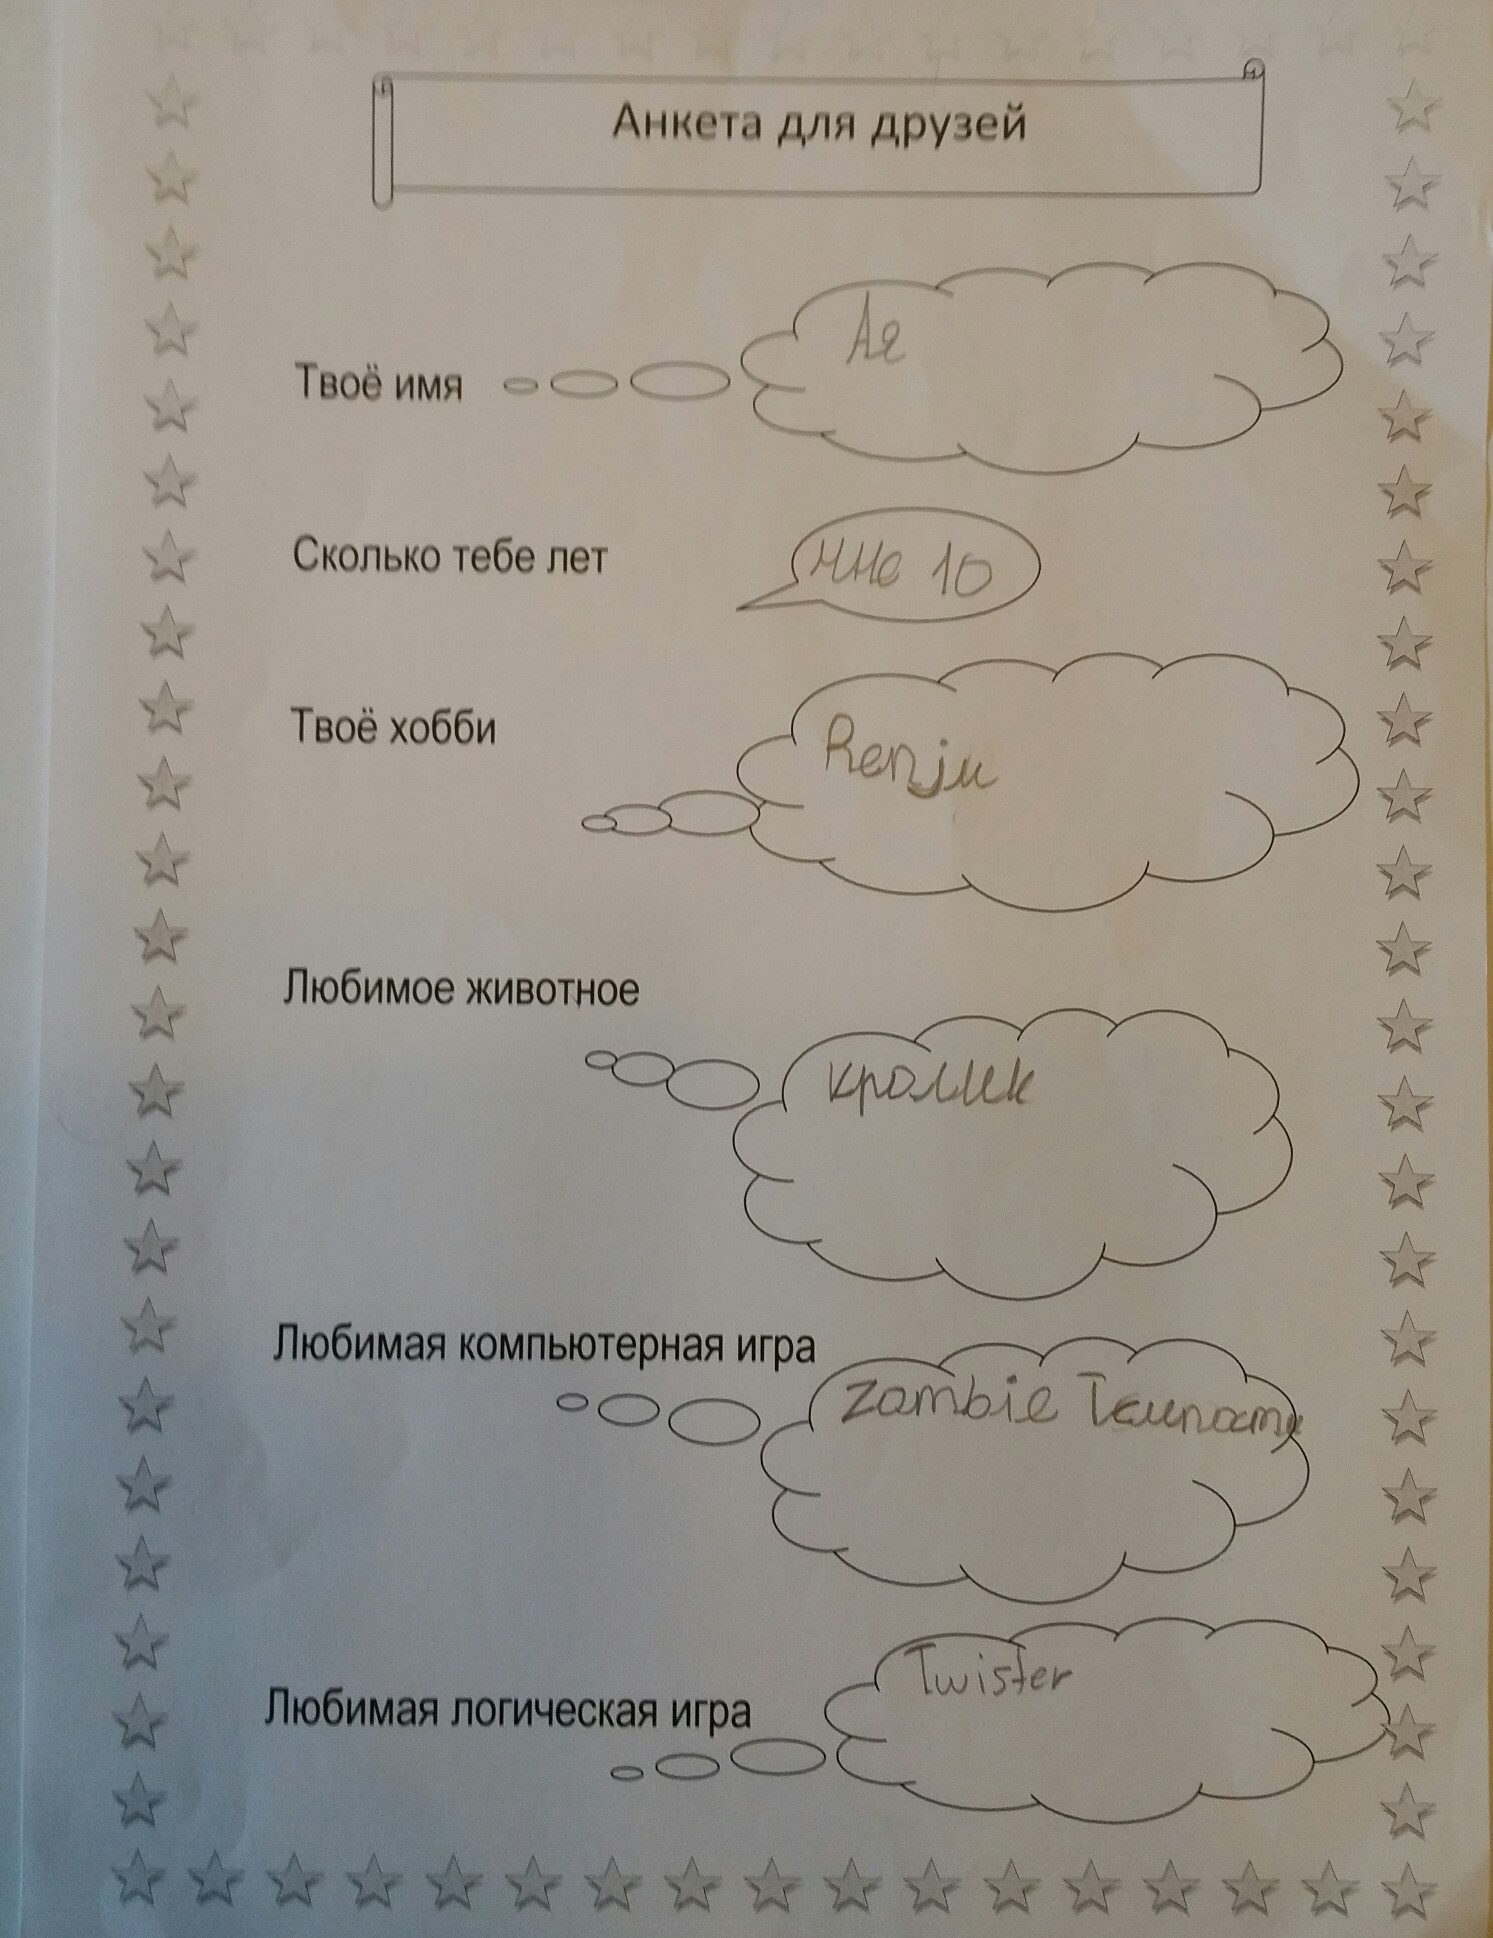 Анкета для друзей
Твоё имя
Ая
Сколько тебе лет
мне 10
Твоё хобби
Renju
Любимое животное
кролик
Любимая компьютерная игра
Zombie
Любимая логическая игра
Twister